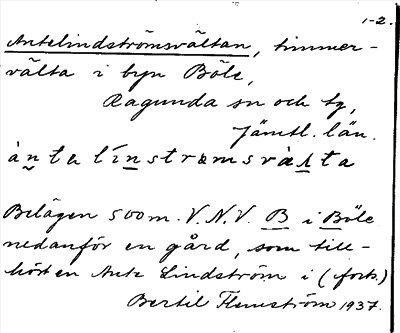 1-2.
Antelindströmsvältan, timmer-
välta i byn Böle,
Ragunda sn och tg,
Jämtl. län.
àntalínstrœmsvälta
Belägen 500 m. V.N.V. B i Böle
nedanför en gård, som till-
hört en Ante Lindström i (forts.)
Bertil Flemström 1937.